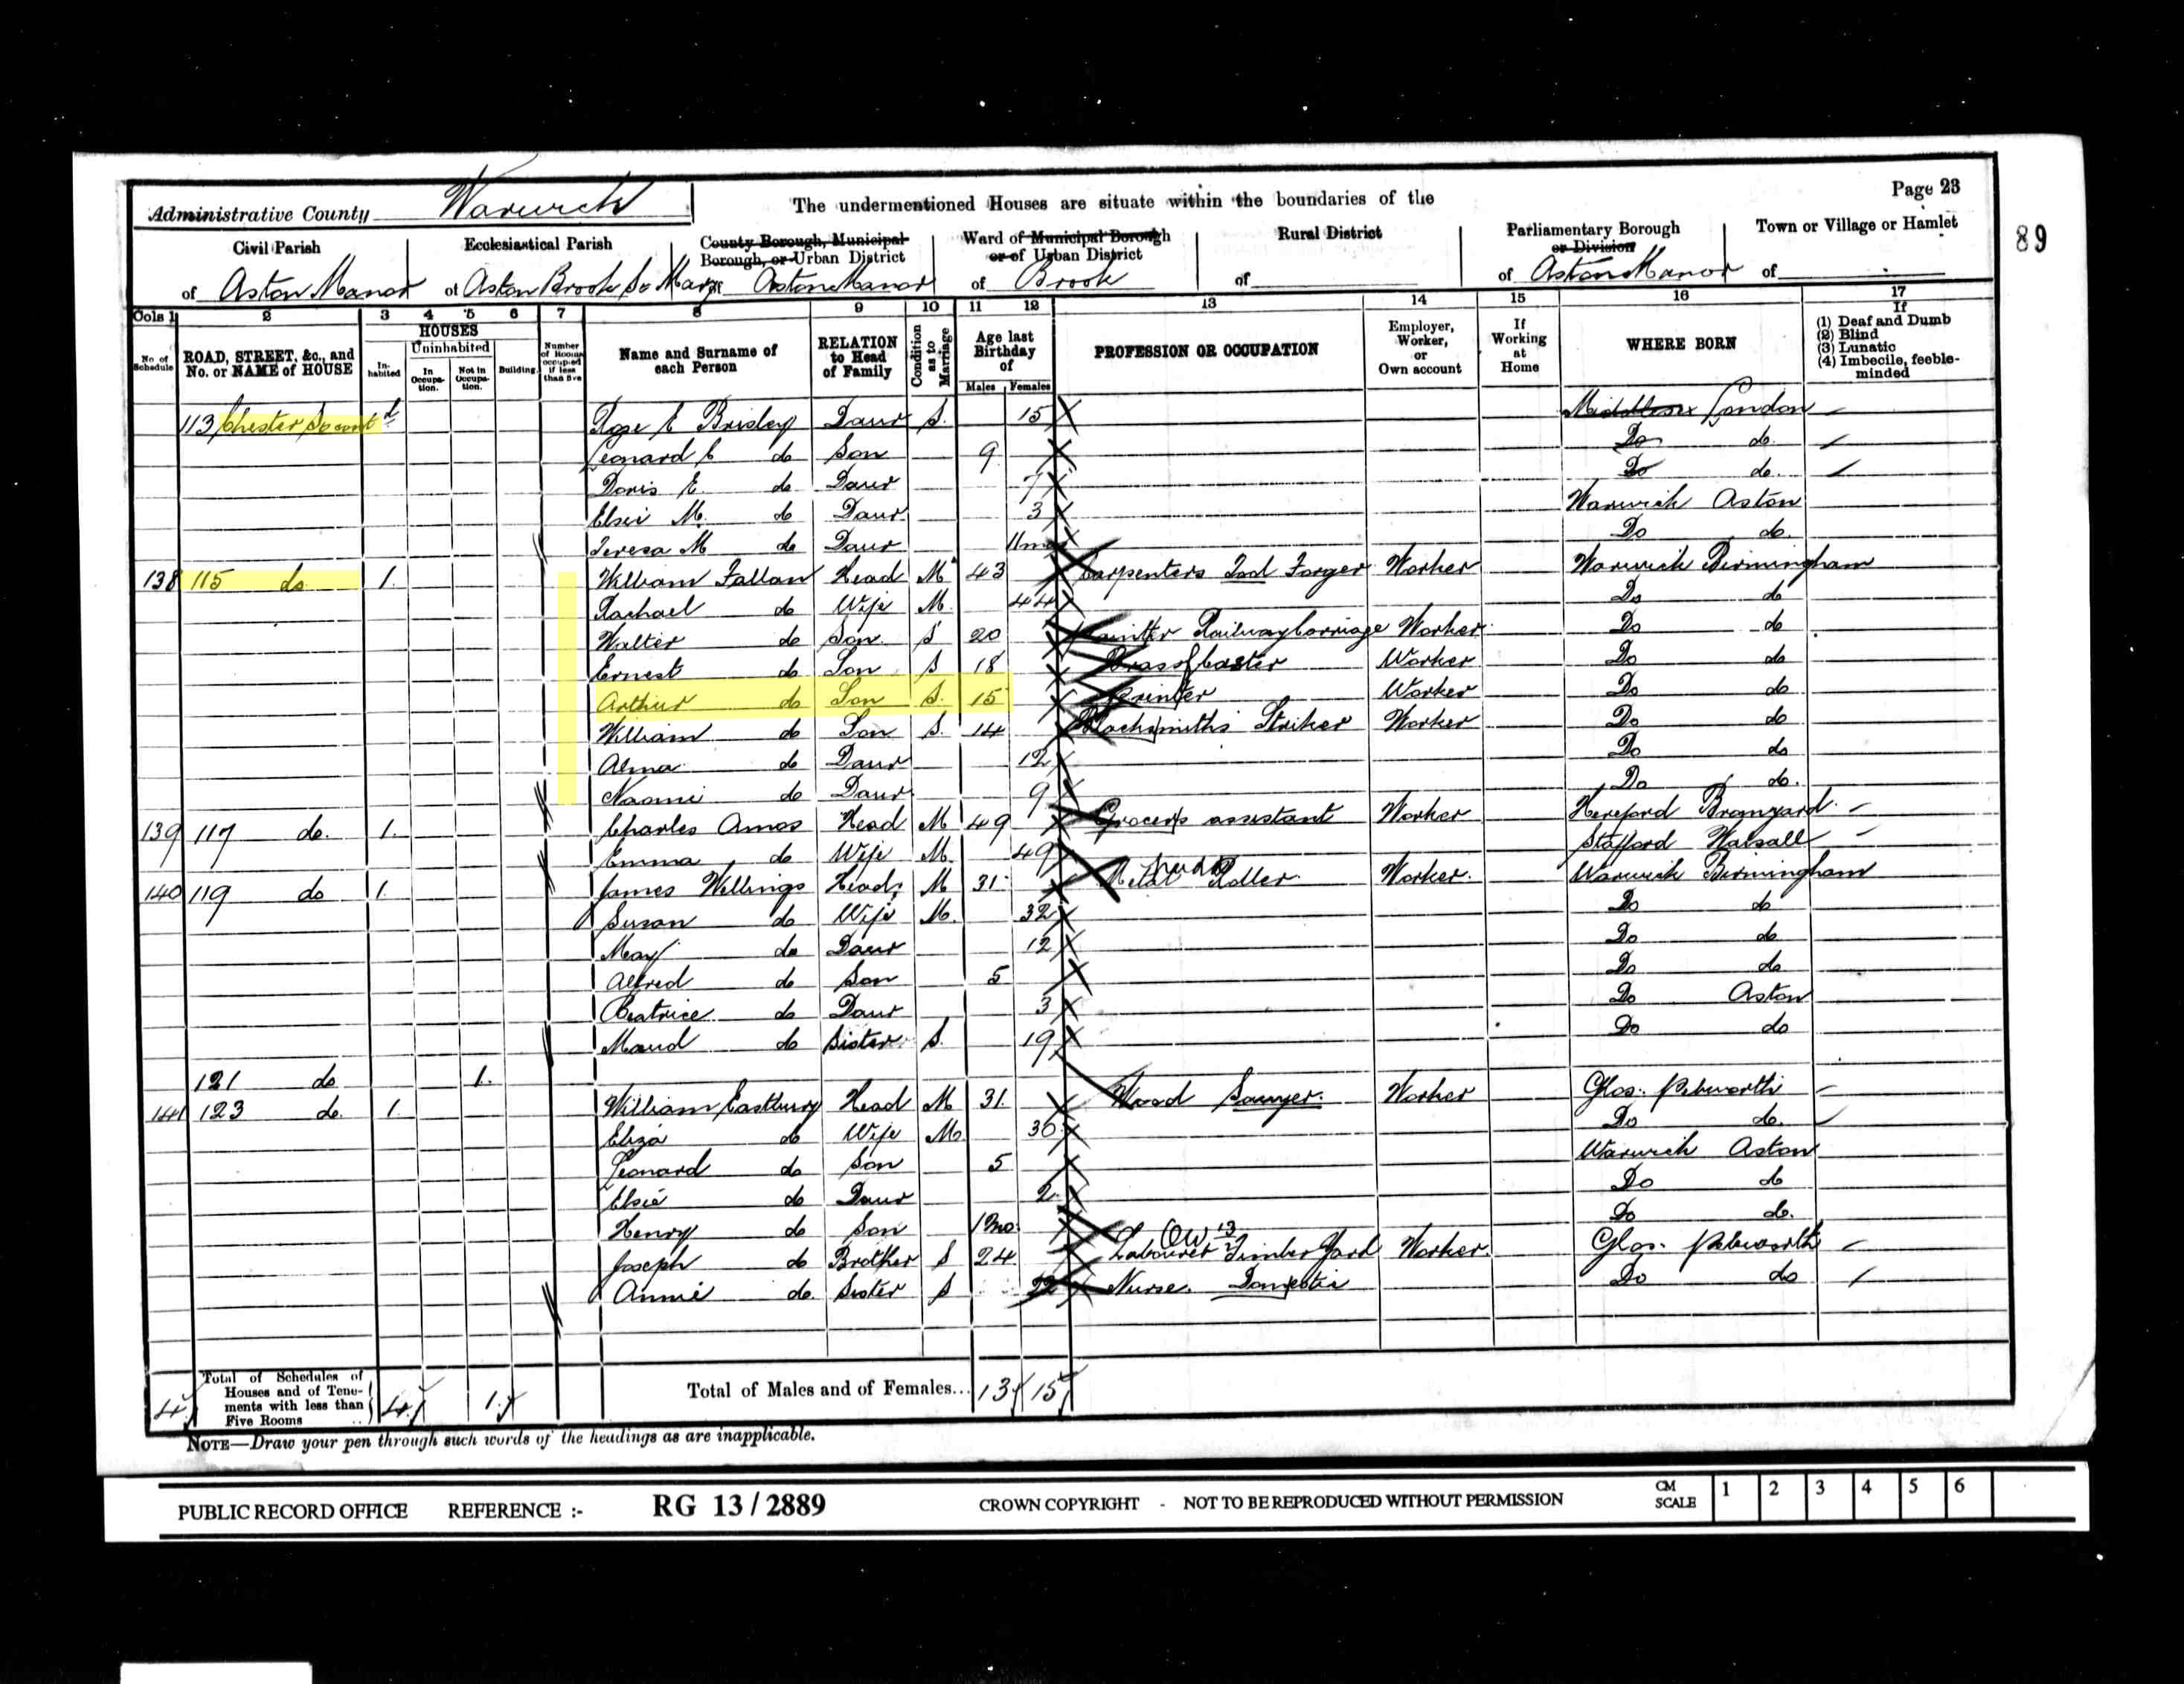 Administrative County Warwick
The undermentioned Houses are situate within the boundaries of the
Page 23
89
Civil Parish
of Aston Manor
Ecclesiastical Parish
of Aston Brook St Mary
County Borough, Municipal
Borough, or Urban District
Aston Manor
Ward of Municipal Borough
or of Urban District
of Brook
Rural District
of
Parliamentary Borough
or Division
of Aston Manor
Town or Village or Hamlet
of
Cols 1 2 3 4 5 6 7 8 9 10 11 12 13 14 15 16 17
No. of Schedule
ROAD, STREET, &c., and No. or NAME of HOUSE
HOUSES
In-habited
Uninhabited
In Occupa-tion.
Not in Occupa-tion.
Building.
Number of Rooms occupied if less than five
Name and Surname of each Person
RELATION to Head of Family
Condition as to Marriage
Age last Birthday of
Males Females
PROFESSION OR OCCUPATION
Employer, Worker, or Own account
If Working at Home
WHERE BORN
If
(1) Deaf and Dumb
(2) Blind
(3) Lunatic
(4) Imbecile, feeble-minded
113 Chester St contd Rose E Brisley Daur S. 15 Middlesex London
Leonard C do Son 9 Do do
Doris E. do Daur 7 Do do
Elsie M. do Daur 3 Warwick Aston
Teresa M do Daur 11mo Do do
138 115 do 1. William Fallan Head M 43 Carpenters Tool Forger Worker Warwick Birmingham
Rachael do Wife M. 44 Do do
Walter do Son. S 20 Painter Railway Carriage Worker Do do
Ernest do Son S 18 Brass Caster Worker Do do
Arthur do Son S. 15 Printer Worker Do do
William do Son S. 14 Blacksmiths Striker Worker Do do
Alma do Daur 12 Do do
Naomi do Daur 9 Do do.
139 117 do. 1. Charles Amos Head M 49 Grocers assistant Worker Hereford Bromyard.
Emma do Wife M. 49 Stafford Walsall
140 119 do 1. James Willings Head M 31 Metal Roller. Worker. Warwick Birmingham
Susan do Wife M. 32 Do do
May do Daur 12 Do do
Alfred do Son 5 Do do
Beatrice do Daur 3 Do Aston
Maud do Sister S. 19 Do do
121 do 1.
141 123 do. 1. William Eastbury Head M 31. Wood Sawyer. Worker Glos. Pebworth
Eliza do Wife M 36 Do do.
Leonard do Son 5 Warwick Aston
Elsie do Daur 2 Do do
Henry do Son 1mo. Do do.
Joseph do Brother S 24 Labourer Timber Yard Worker. Glos. Pebworth
Annie do. Sister S 22 Nurse. Domestic Do do
4 Total of Schedules of Houses and of Tene-ments with less than Five Rooms 4 1 Total of Males and of Females... 13 15
NOTE—Draw your pen through such words of the headings as are inapplicable.
PUBLIC RECORD OFFICE REFERENCE :- RG 13 / 2889 CROWN COPYRIGHT - NOT TO BE REPRODUCED WITHOUT PERMISSION CM SCALE 1 2 3 4 5 6